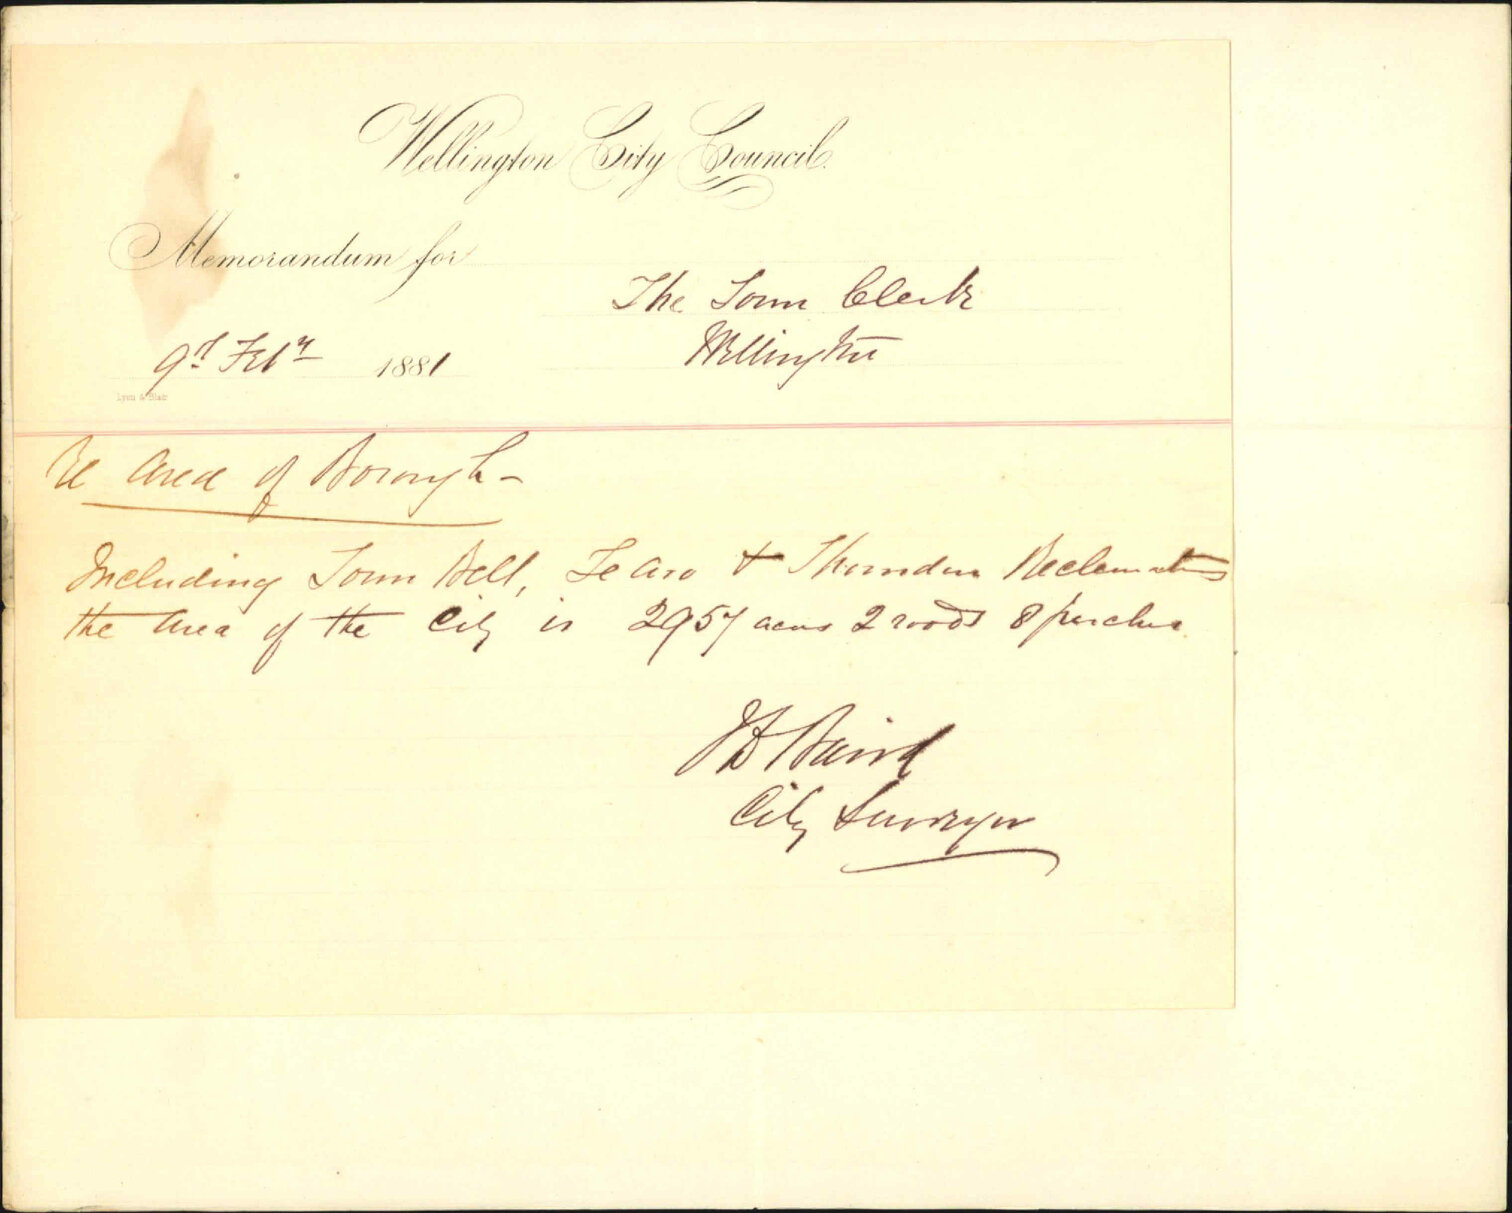 Wellington City Council.
Memorandum for
The Town Clerk
Wellington
9th Feby 1881
Lyon & Blair
Re Area of Borough -
Including Town Belt, Te Aro & Thorndon Reclamations
the area of the City is 2957 acres 2 roods 8 perches
J D Baird
City Surveyor